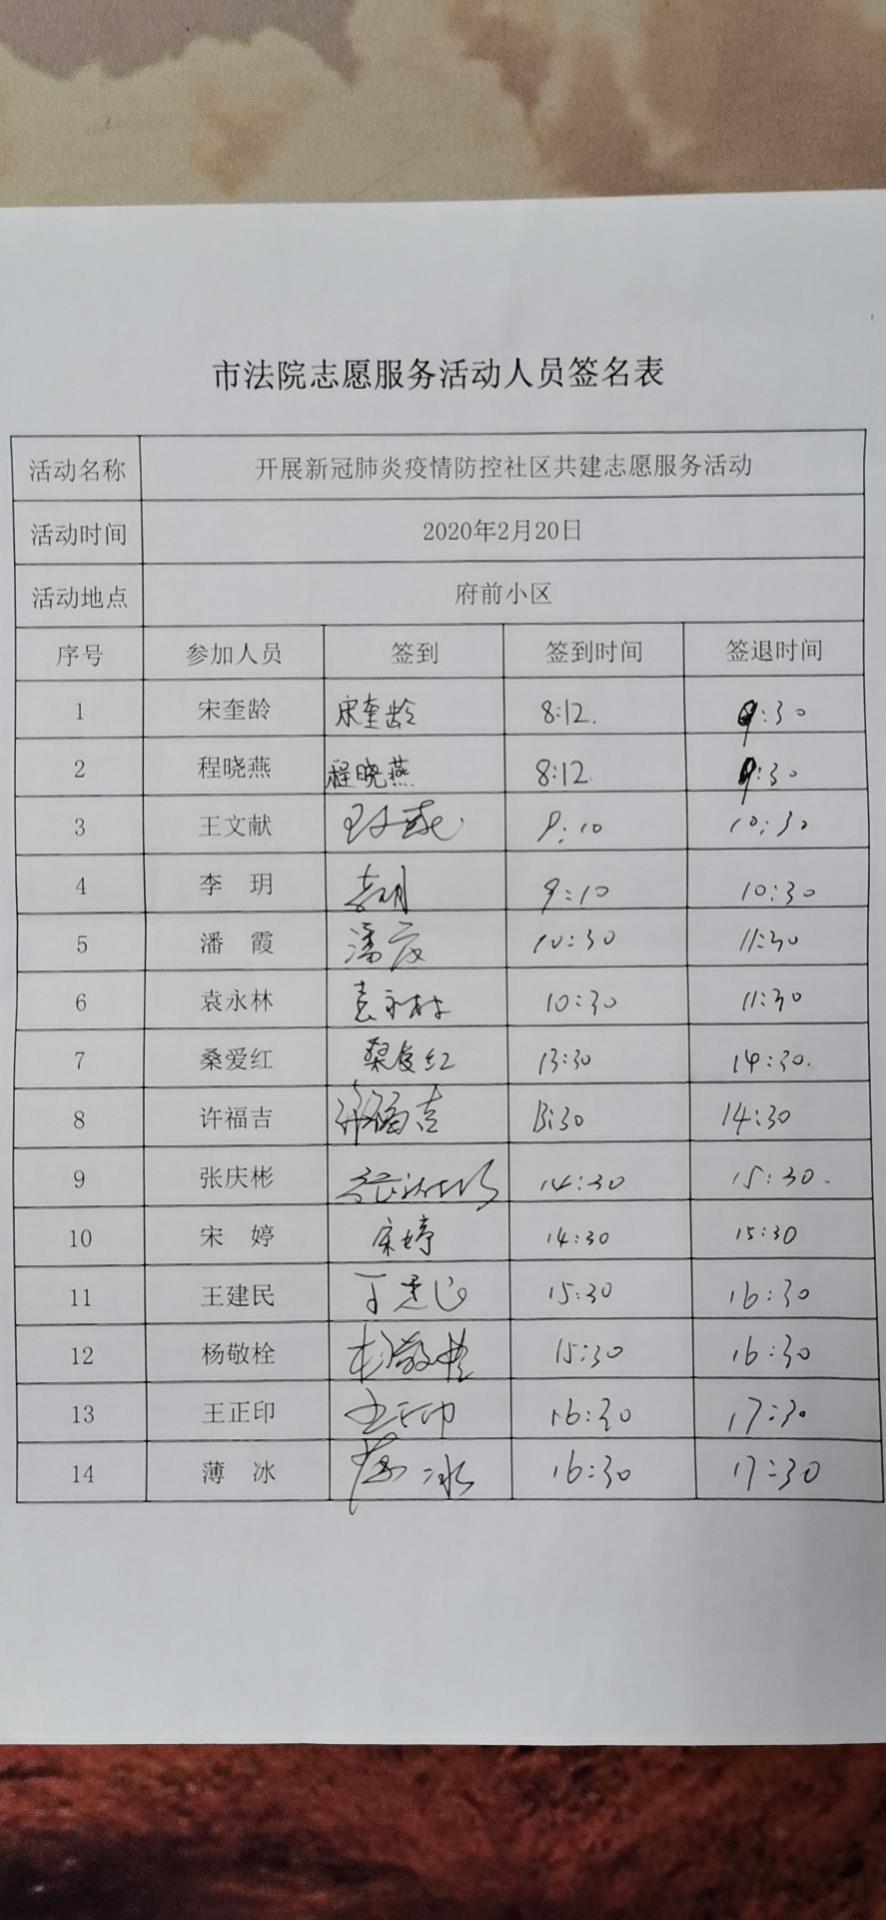 市法院志愿服务活动人员签名表
活动名称 开展新冠肺炎疫情防控社区共建志愿服务活动
活动时间 2020年2月20日
活动地点 府前小区
序号 参加人员 签到 签到时间 签退时间
1 宋奎龄 宋奎龄 8:12. 9:30
2 程晓燕 程晓燕 8:12. 9:30
3 王文献 王文献 9:10 10:30
4 李 玥 李玥 9:10 10:30
5 潘 霞 潘霞 10:30 11:30
6 袁永林 袁永林 10:30 11:30
7 桑爱红 桑爱红 13:30 14:30.
8 许福吉 许福吉 13:30 14:30
9 张庆彬 张庆彬 14:30 15:30.
10 宋 婷 宋婷 14:30 15:30
11 王建民 王建民 15:30 16:30
12 杨敬栓 杨敬栓 15:30 16:30
13 王正印 王正印 16:30 17:30
14 薄 冰 薄冰 16:30 17:30